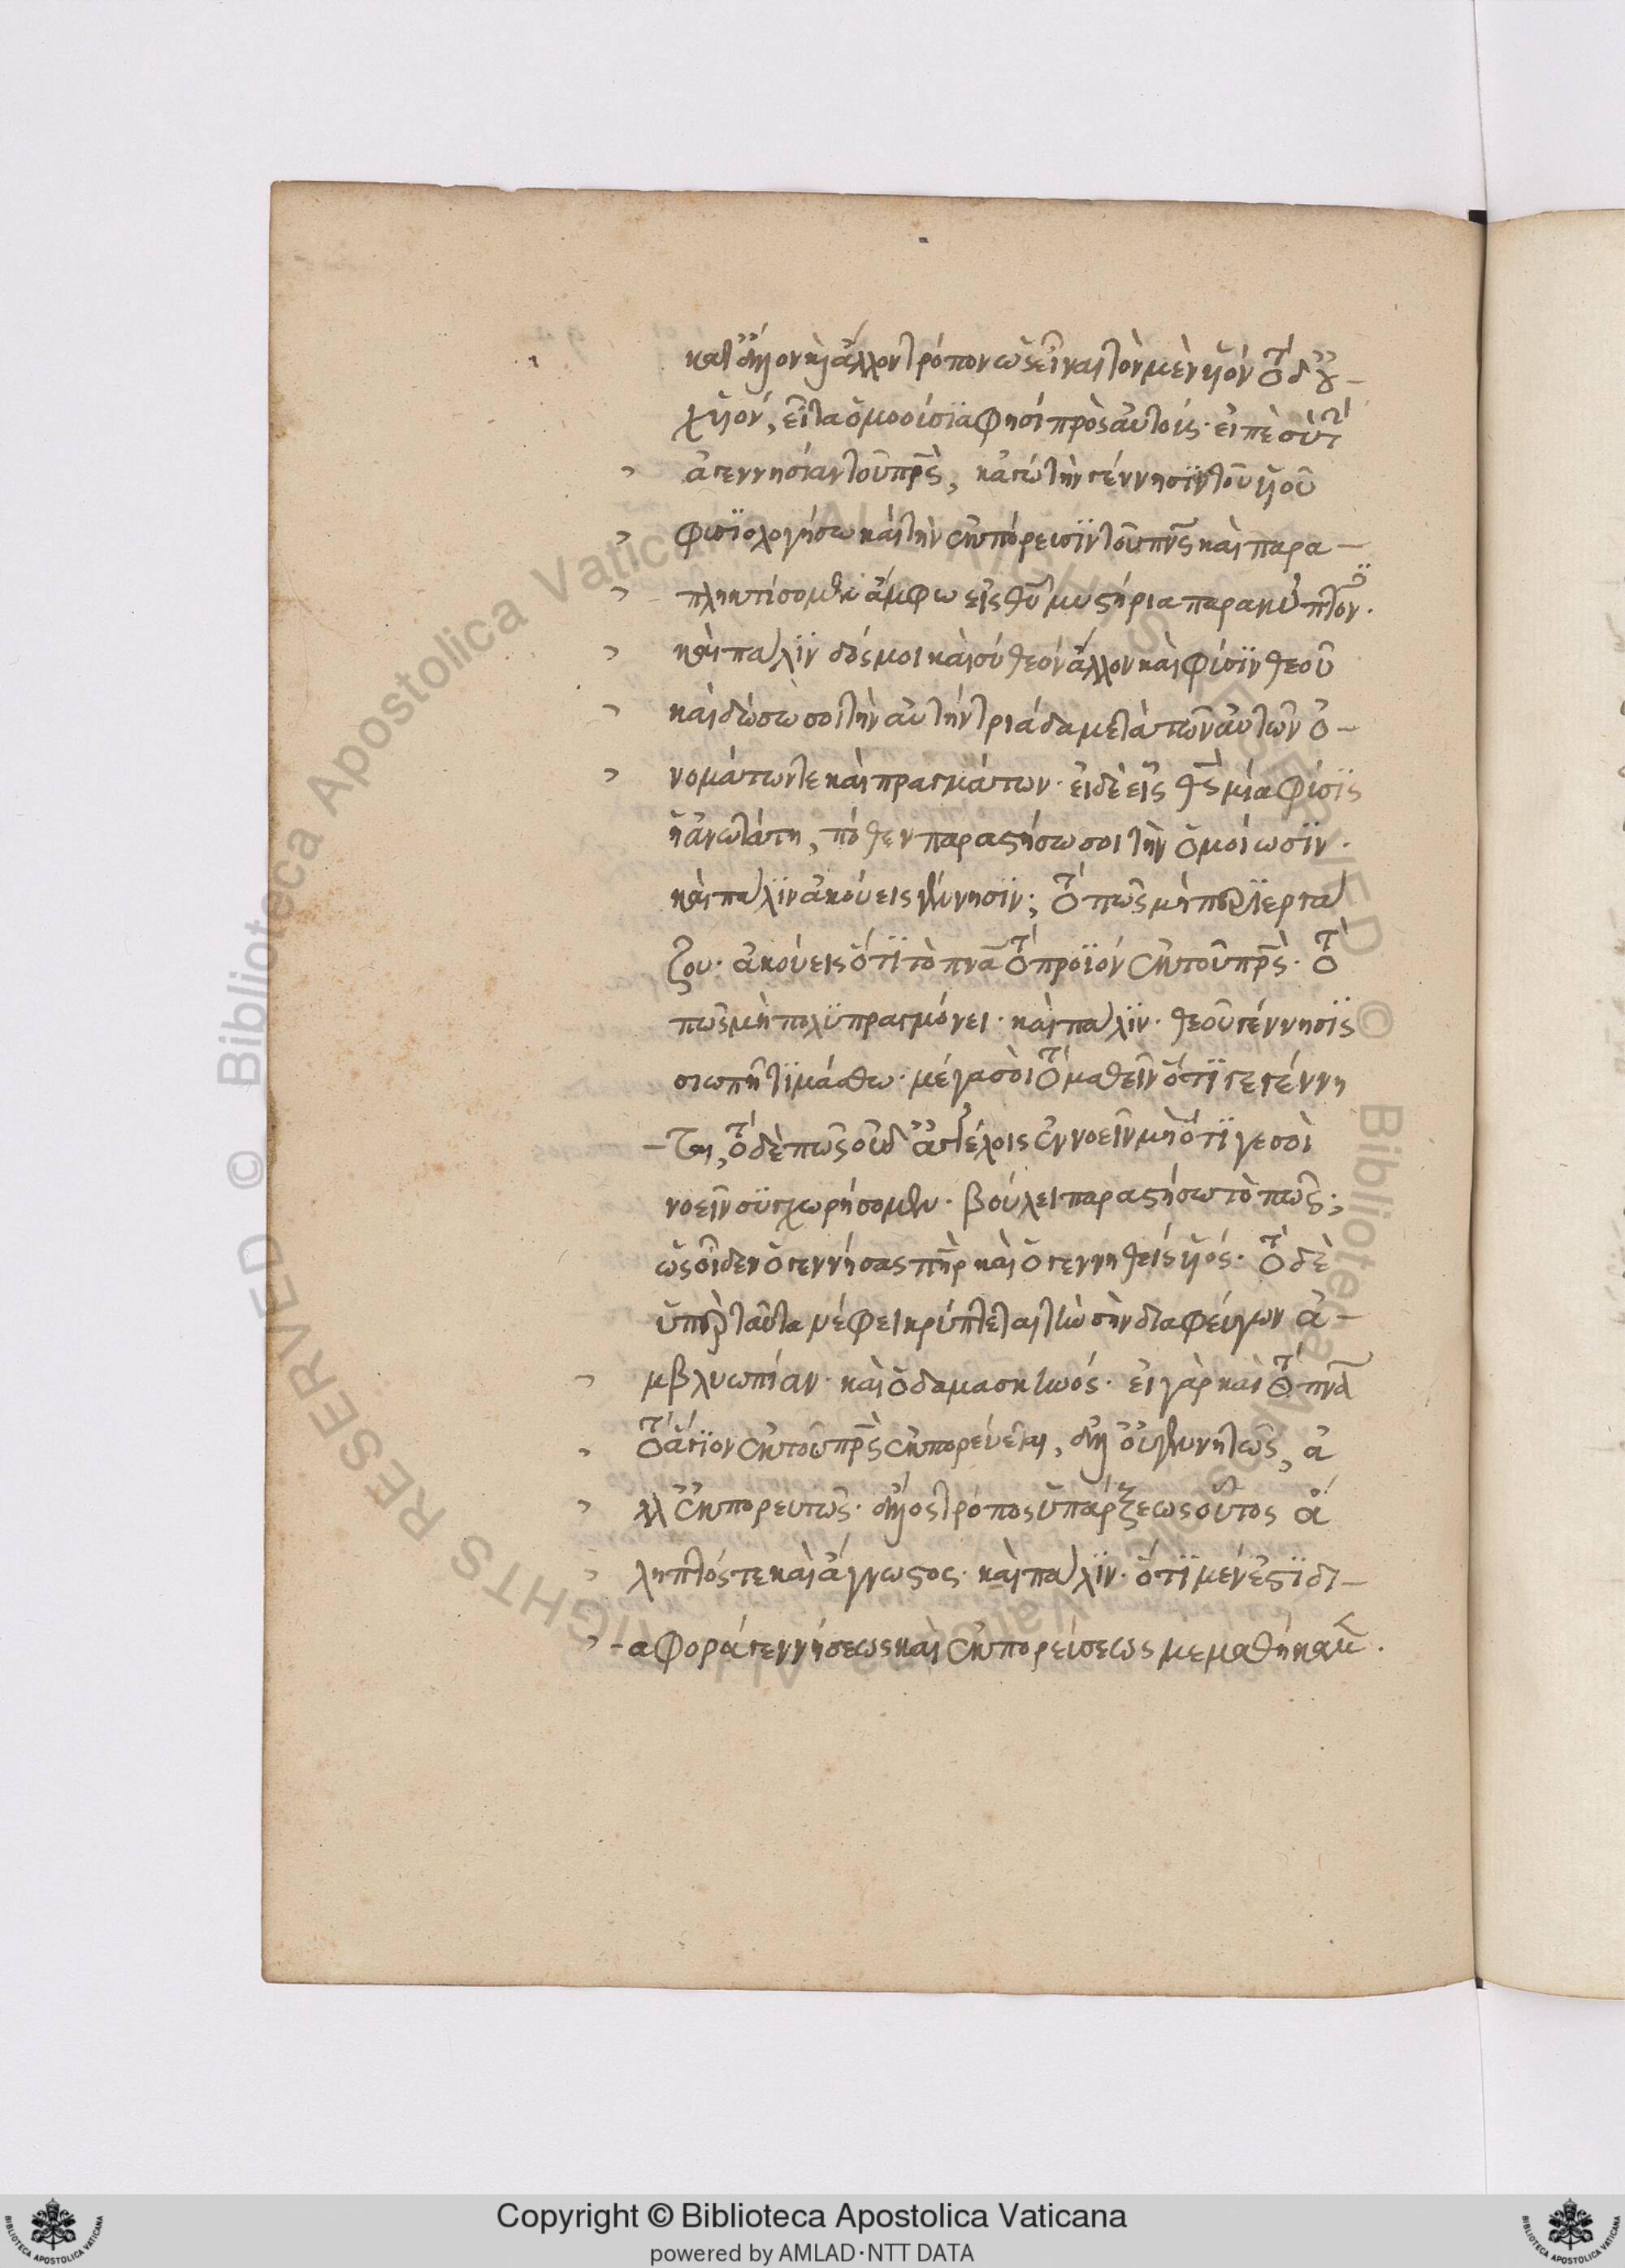 κατ' ἄλλον κὶ ἄλλον τρόπον ὡς εἶναι τὸν μὲν υἱόν τὸ δ' οὐ-
χ υἱόν, εἶτα ὁμοούσια φησί πρὸς αὐτούς· εἰπὲ σὺ τ
ἀγεννησίαν τοῦ πρς, κἀγὼ τὴν γέννησιν τοῦ υἱοῦ
φυσιολογήσω καὶ τὴν ἐκπόρευσιν τοῦ πνς καὶ παρα-
πληκτίσομεν ἄμφω εἰς θυ μυστήρια παρακύπτον.
καὶ παλιν δός μοι καὶ σύ θεόν ἄλλον καὶ φύσιν θεοῦ
καὶ δώσω σοι τὴν αὐτήν τριάδα μετὰ τῶν αὐτῶν ὀ-
νομάτων τε καὶ πραγμάτων· εἰ δὲ εἷς θς μία φύσις
ἡ ἀνωτάτη, πόθεν παραστήσω σοι τὴν ὁμοίωσιν·
καὶ παλιν ἀκούεις γέννησιν; τὸ πῶς μὴ περιεργα
ζου· ἀκούεις ὅτι τὸ πνα τὸ προϊόν ἐκ τοῦ πρς· τὸ
πῶς μὴ πολυπραγμόνει· καὶ παλιν· θεοῦ γέννησις
σιωπῇ τιμάσθω· μέγα σὸι τὸ μαθεῖν ὅτι γεγέννη
-ται, τὸ δὲ πῶς οὐδ' ἀγγέλοις ἐννοεῖν μὴ ὅτι γε σοὶ
νοεῖν συγχωρήσομεν· βούλει παραστήσω τὸ πῶς;
ὡς οἶδεν ὁ γεννήσας πηρ καὶ ὁ γεννηθείς υἱός· τὸ δὲ
ὑπὲρ ταῦτα νέφει κρύπτεται τὴν σὴν διαφεύγων ἀ-
μβλυωπίαν· καὶ ὁ δαμασκηνός· εἰ γὰρ καὶ τὸ πνα
τὸ ἅγιον ἐκ τοῦ πρς ἐκπορεύεται, ἀλλ' οὐ γεννητῶς, ἀ
λλ' ἐκπορευτῶς· ἄλλος τρόπος ὑπάρξεως οὗτος ἄ
ληπτός τε καὶ ἄγνωστος· καὶ παλιν· ὅτι μέν ἐστι δι-
-αφορά γεννήσεως καὶ ἐκπορεύσεως μεμαθήκαμ.
Copyright © Biblioteca Apostolica Vaticana
powered by AMLAD·NTT DATA